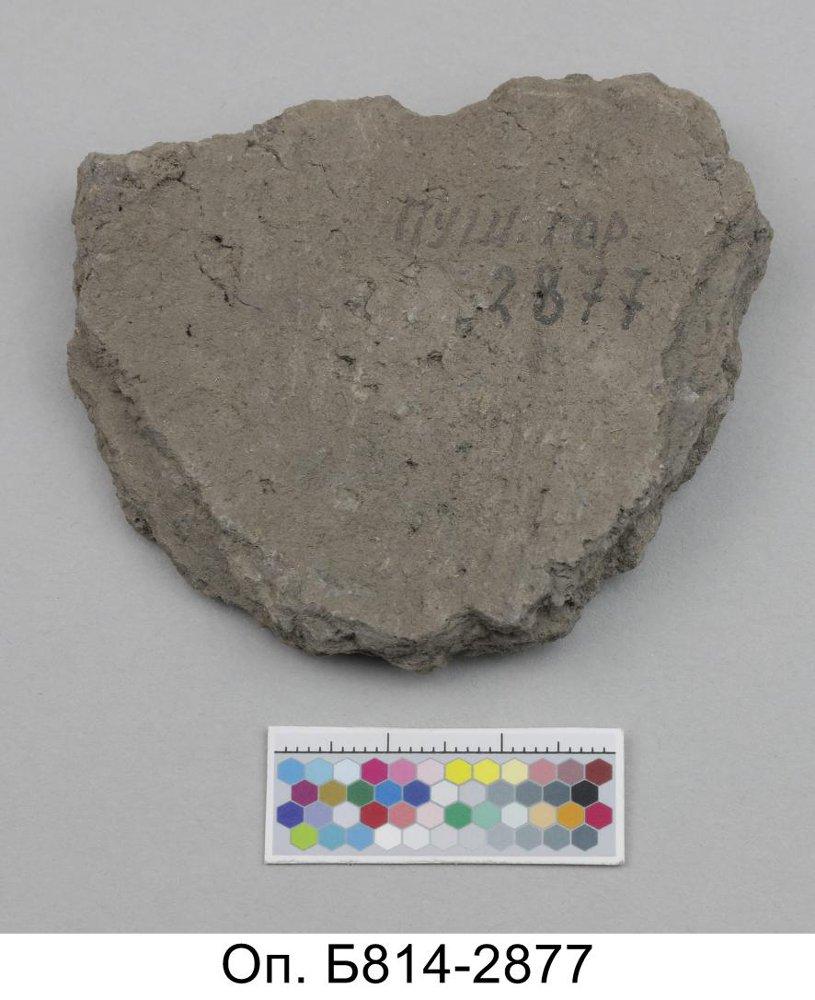 Пуш. гор.
2877
Оп. Б814-2877